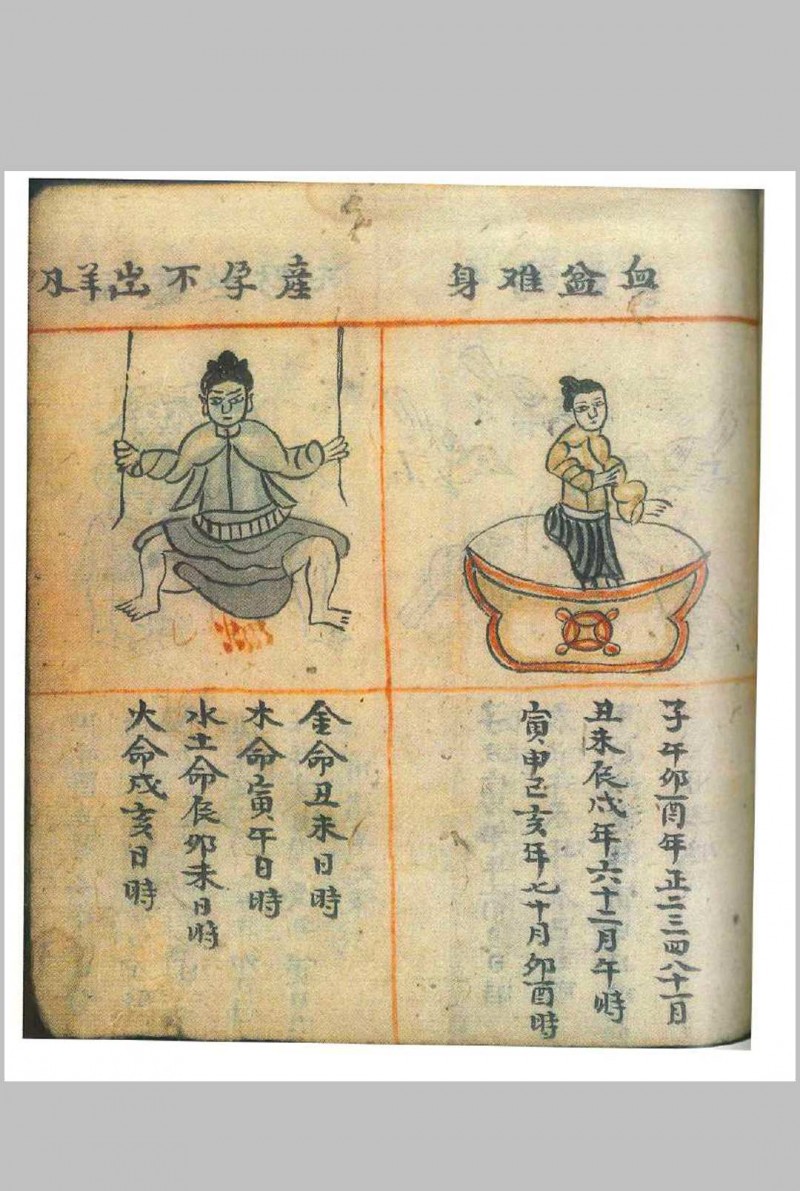 血盆难身
子午卯酉年正二三四八十一月
丑未辰戌年六十二月午時
寅申巳亥年七十月卯酉時
産孕不出羊刃
金命丑未日時
木命寅午日時
水土命辰卯未日時
火命戌亥日時